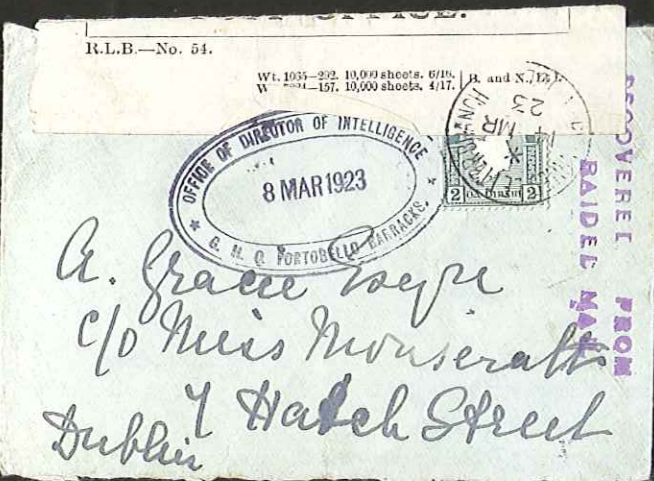 POST OFFICE.
R.L.B.—No. 54.
Wt. 1035—292. 10,000 sheets. 6/16.
W 157. 10,000 sheets. 4/17.
B. and N., Ltd.
OFFICE OF DIRECTOR OF INTELLIGENCE
8 MAR 1923
G. H. Q. PORTOBELLO BARRACKS.
14 MR
23
2 2
RECOVERED FROM
RAIDED MAIL
A. Gracie Esqre
c/o Miss Monseratt
7 Hatch Street
Dublin